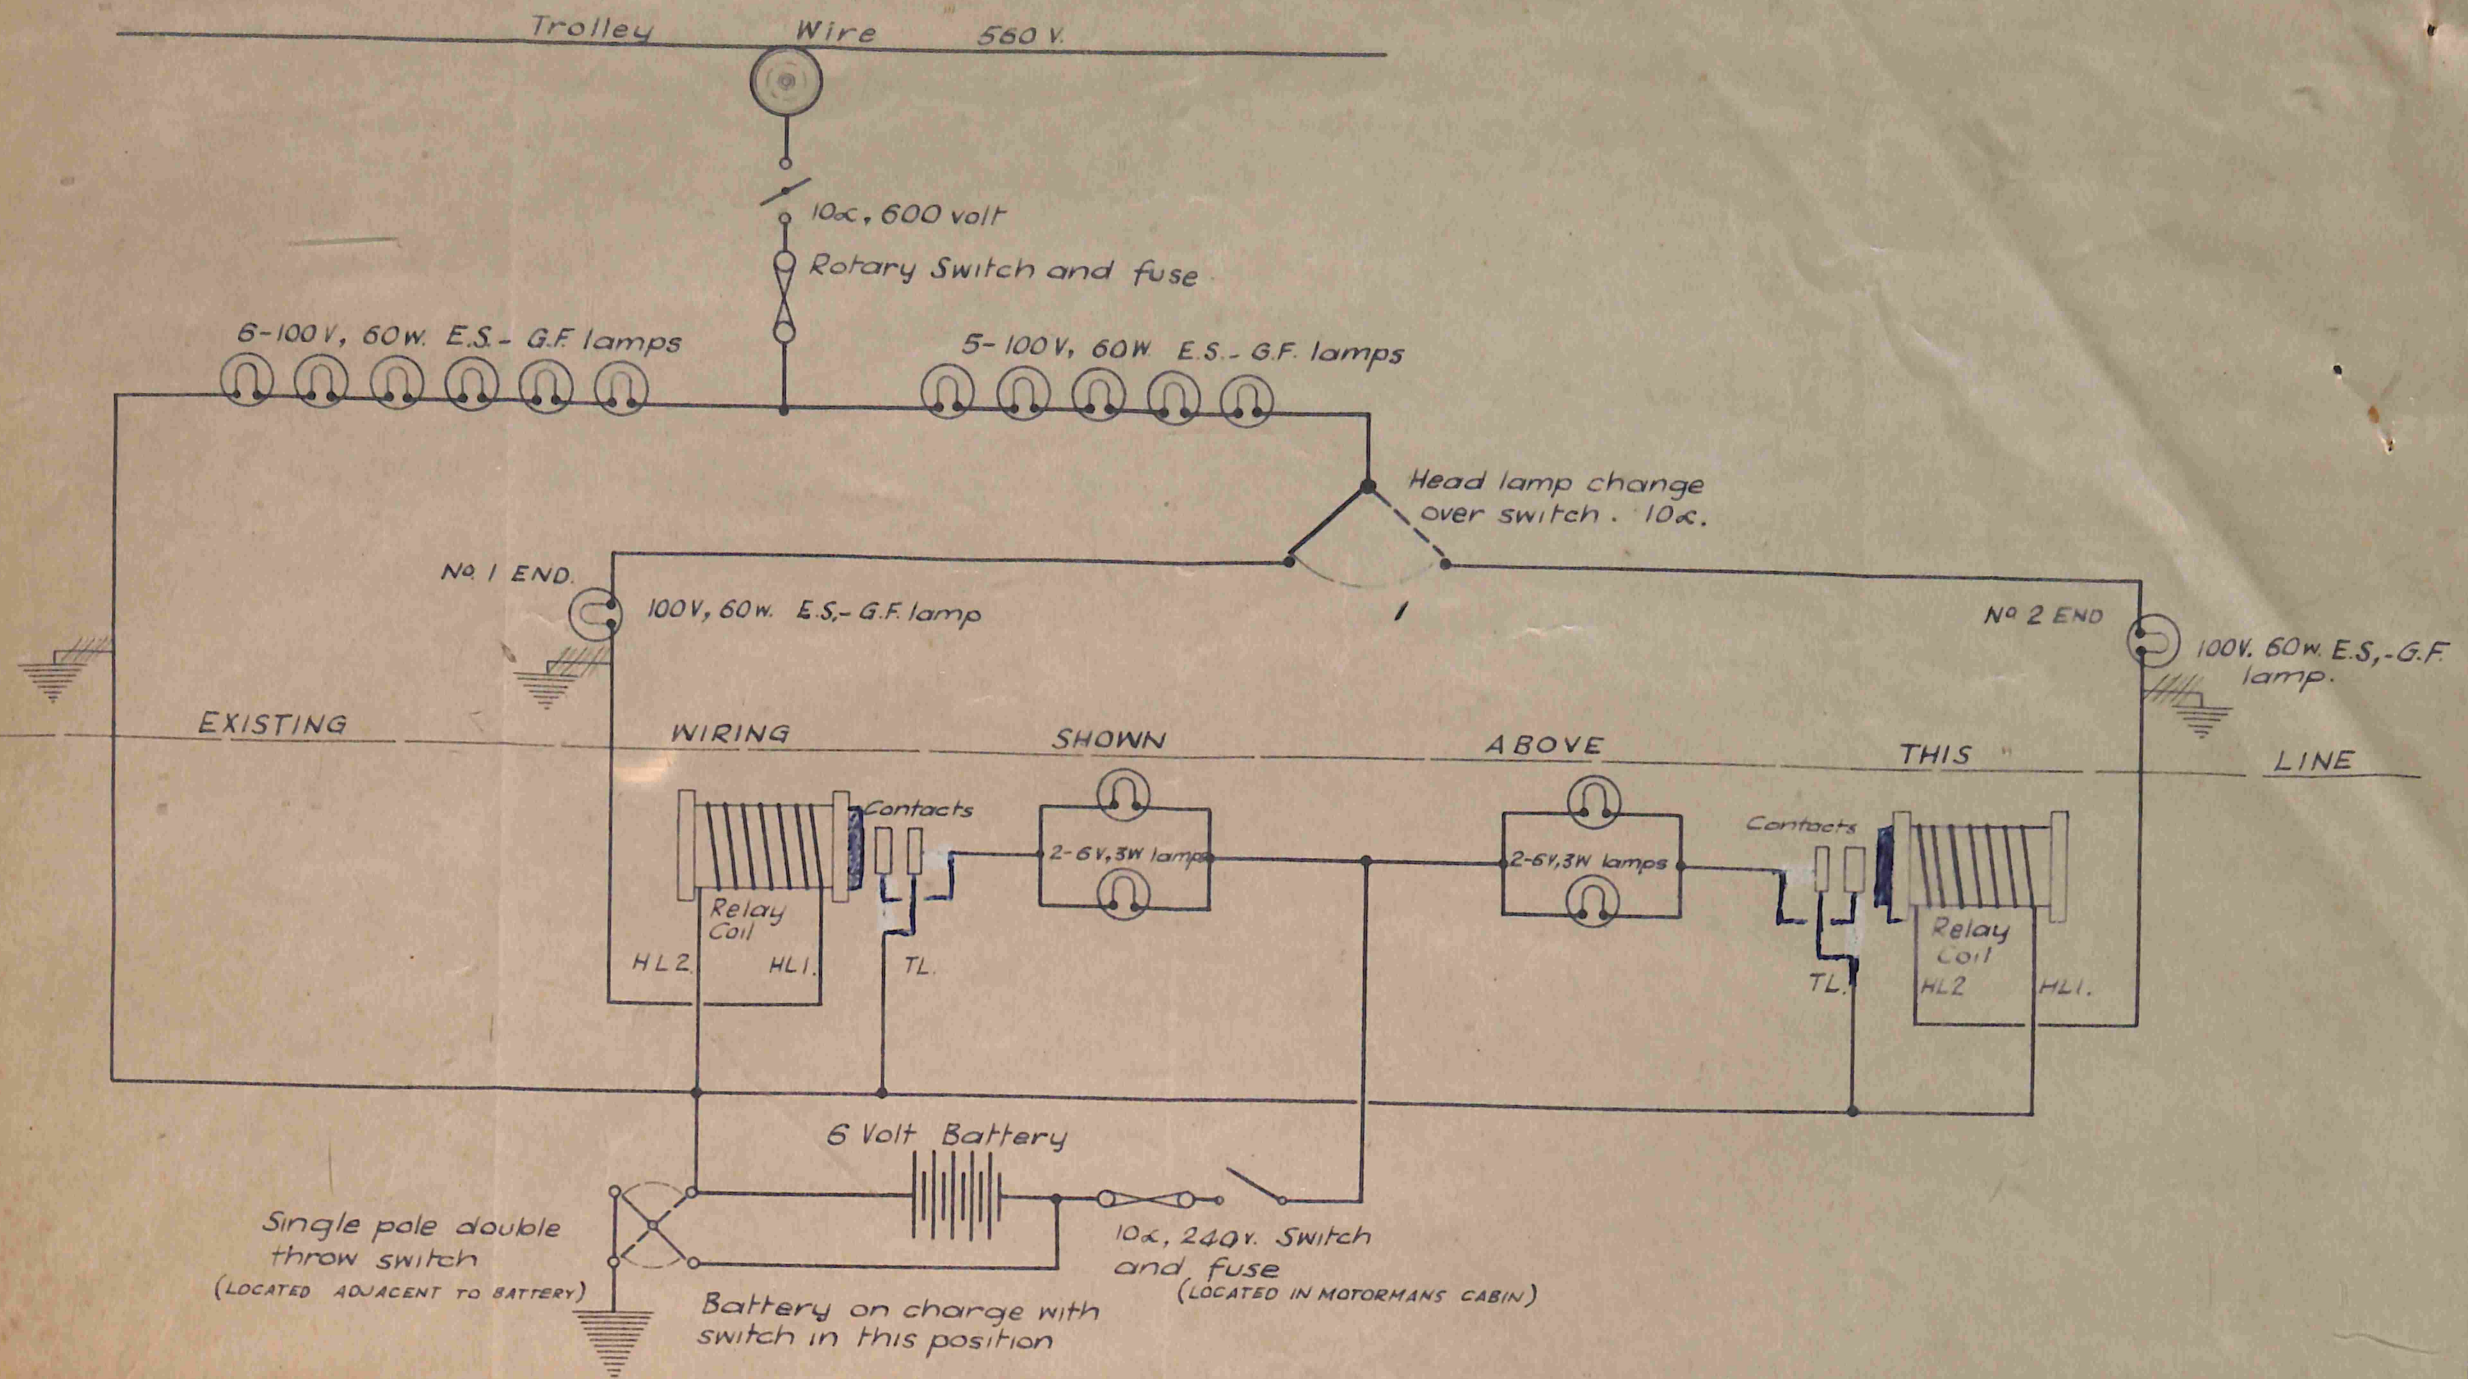 Trolley Wire 560 V.
10α, 600 volt
Rotary Switch and fuse
6-100V, 60W. E.S.- G.F. lamps
5-100V, 60W E.S.- G.F. lamps
Head lamp change
over switch. 10α.
No. 1 END.
100V, 60W. E.S,- G.F. lamp
No 2 END
100V. 60W. E.S,-G.F.
lamp.
EXISTING WIRING SHOWN ABOVE THIS LINE
Contacts
2-6V,3W lamps
2-6V,3W lamps
Contacts
Relay
Coil
HL2.
HL1.
TL.
Relay
Coil
TL.
HL2
HL1.
6 Volt Battery
Single pole double
throw switch
(LOCATED ADJACENT TO BATTERY)
10α, 240V. Switch
and fuse
(LOCATED IN MOTORMANS CABIN)
Battery on charge with
switch in this position